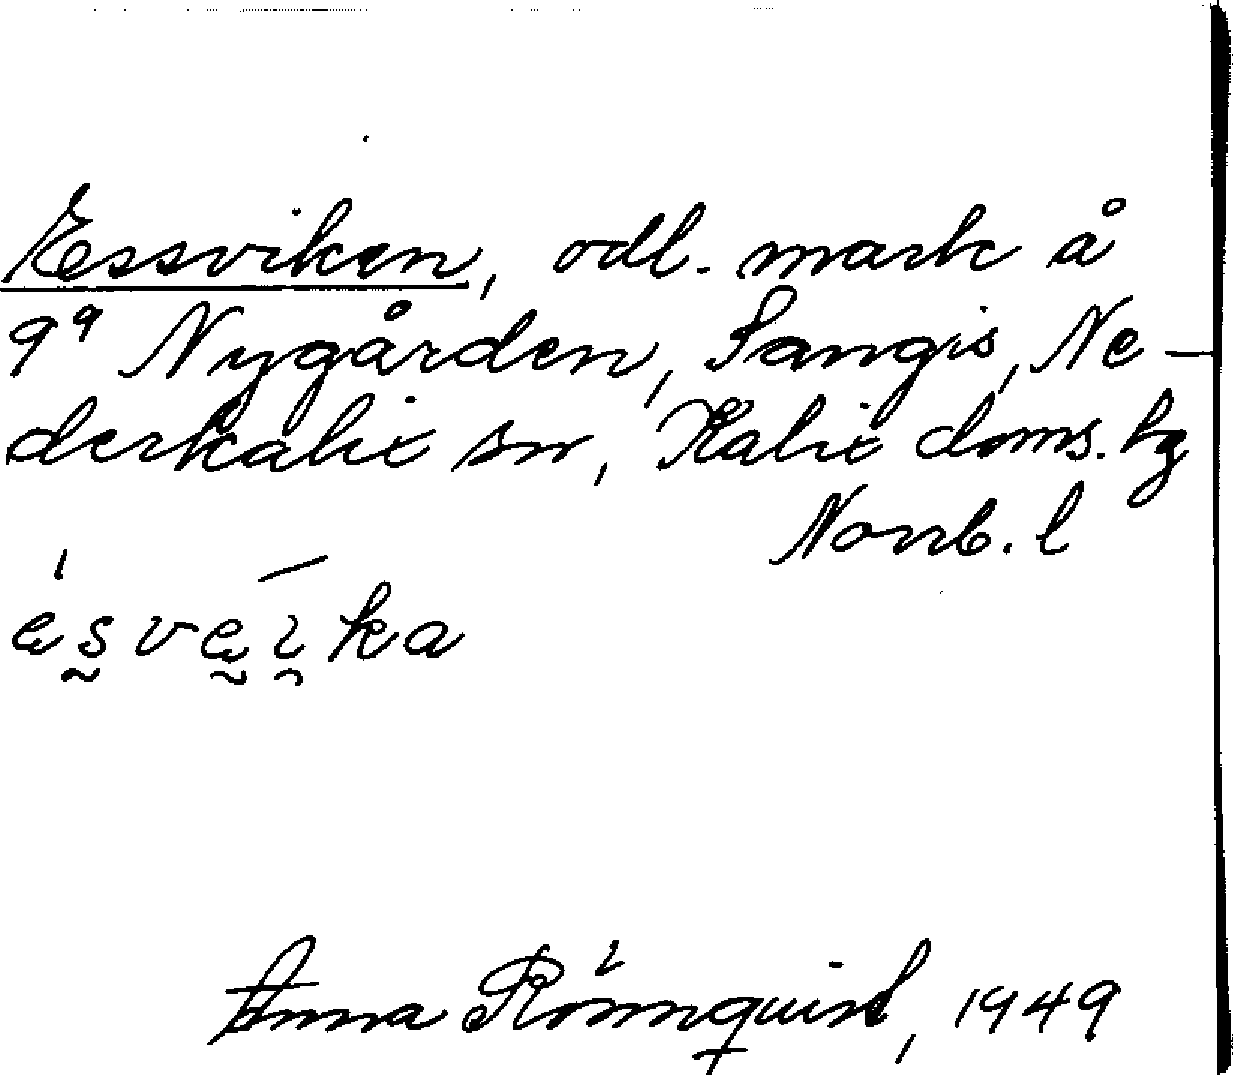 Essviken, odl. mark å
9⁹ Nygården, Sangis, Ne-
derkalix sn, Kalix doms. hg
Norrb. l
esveika
Anna Rönnquist, 1949